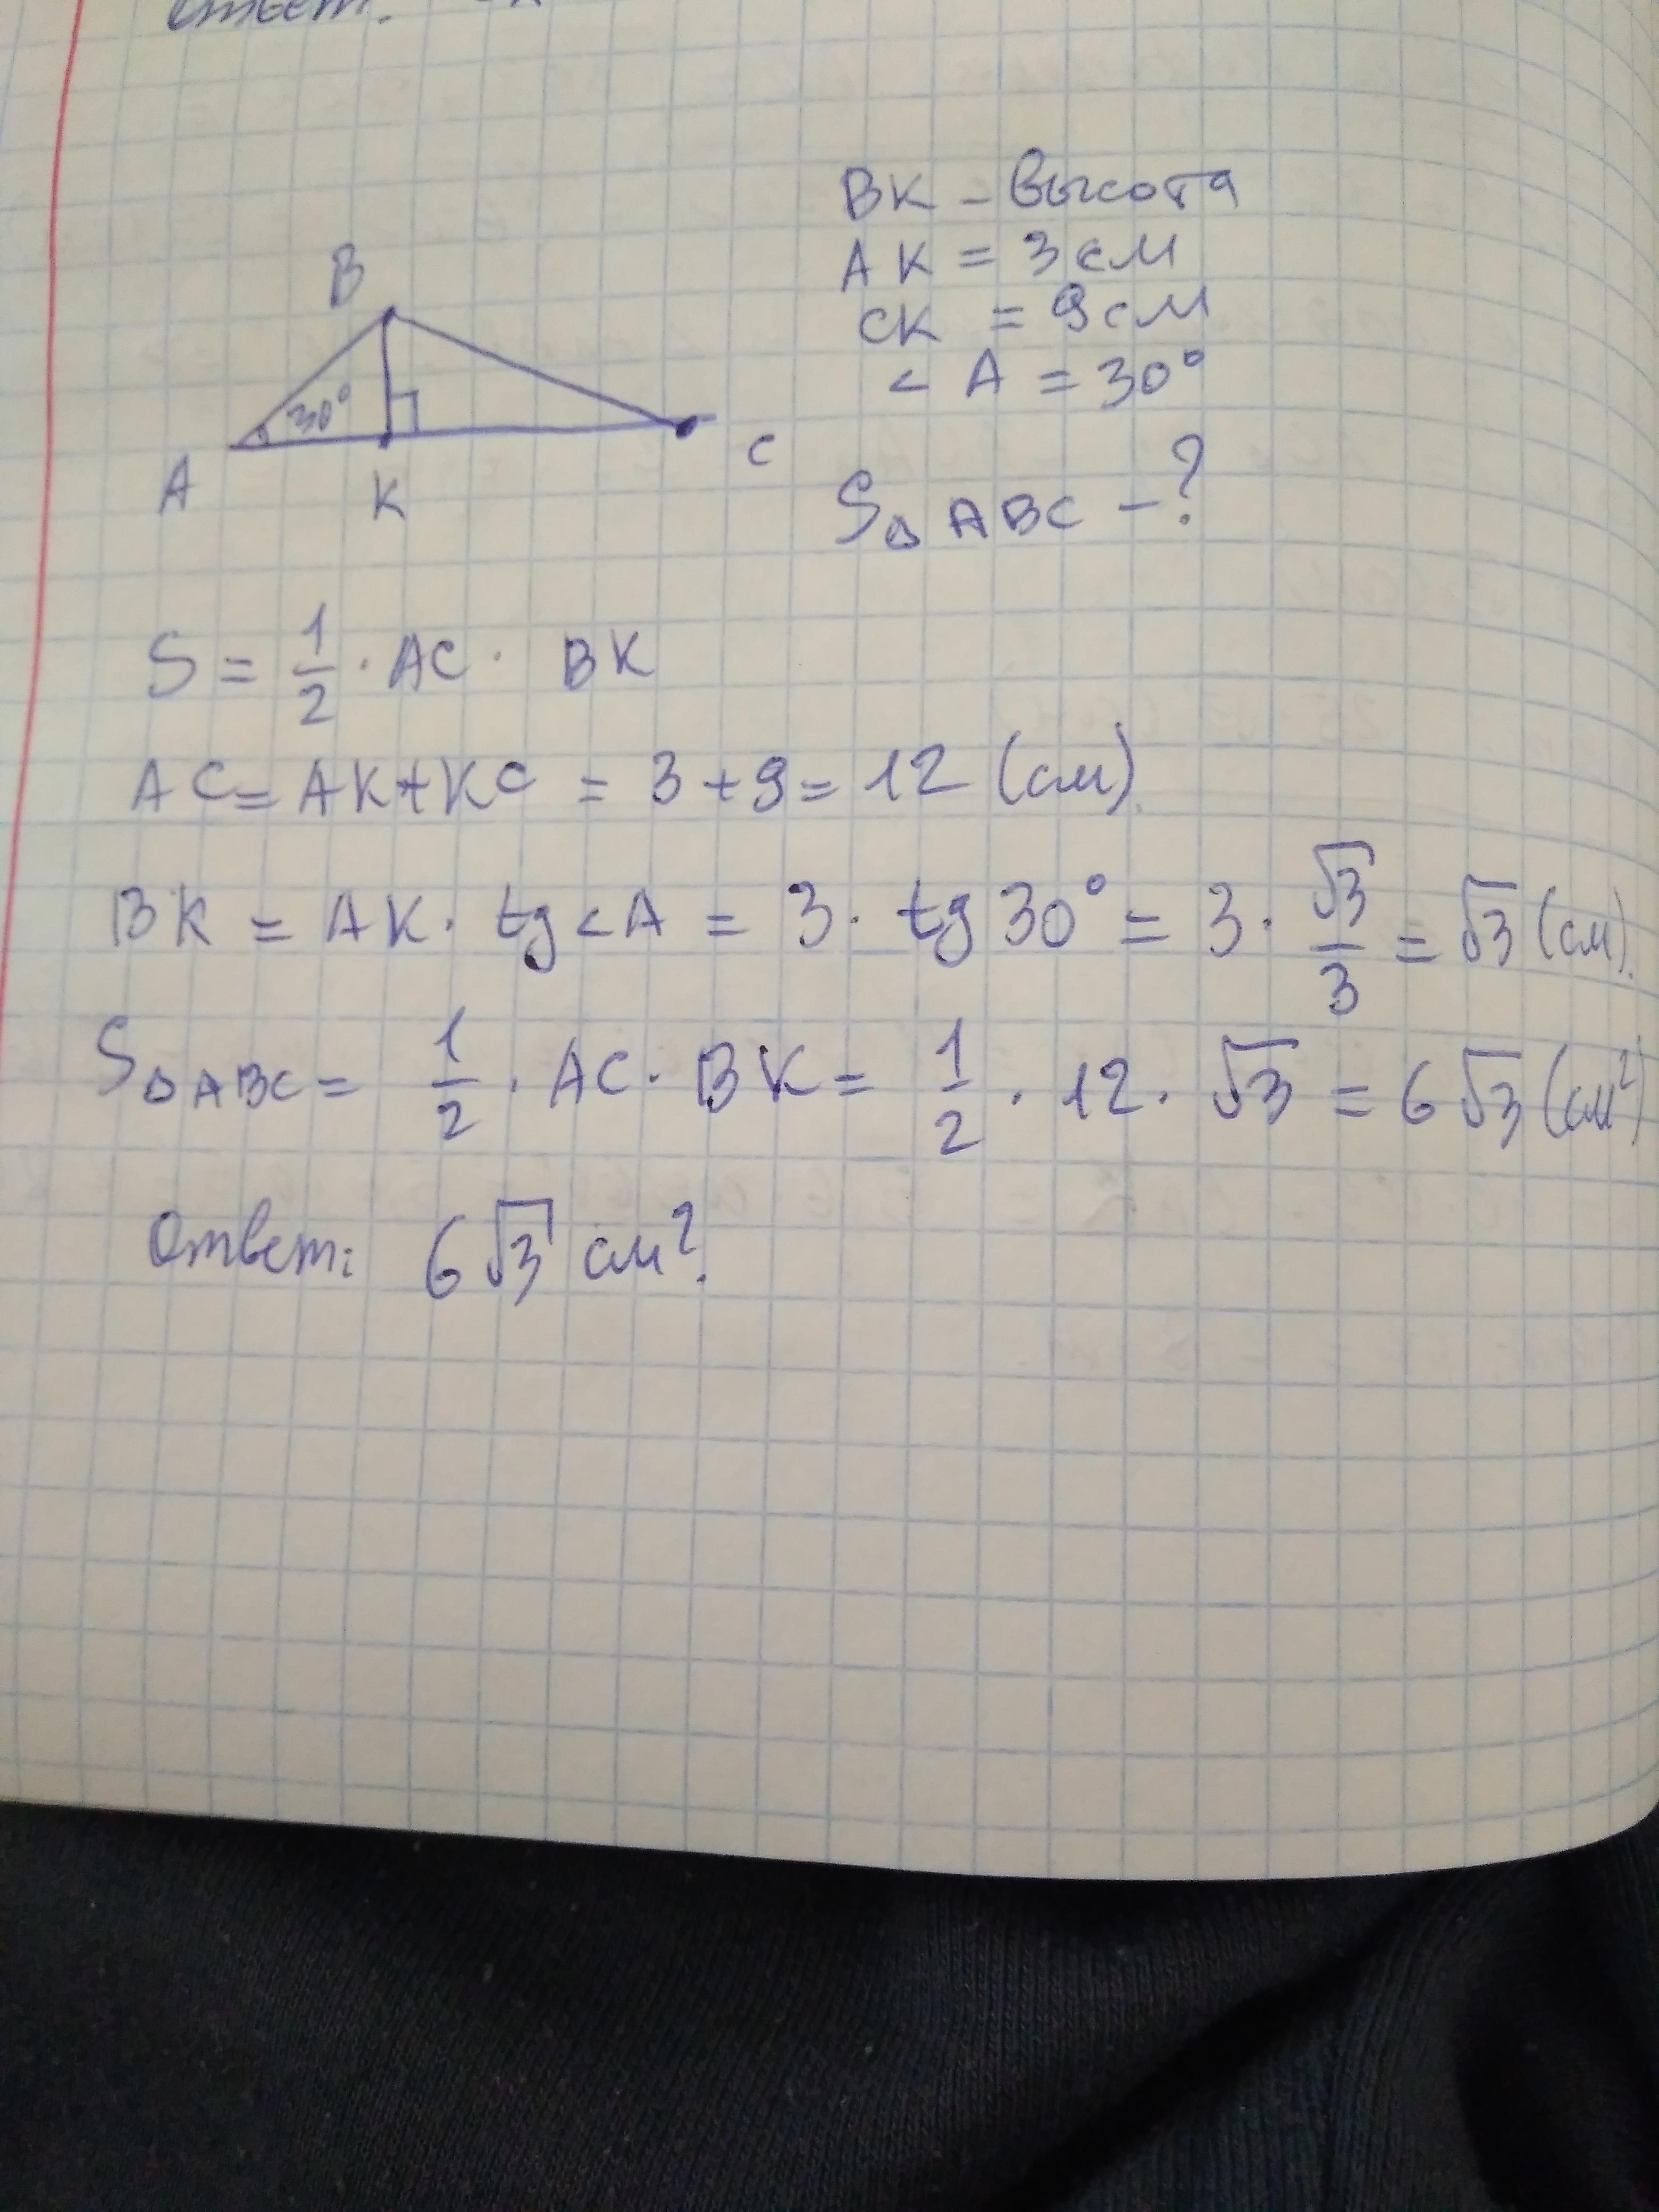 Ответ.
BK - высота
AK = 3 см
CK = 9 см
< A = 30°
S△ABC - ?
B
30°
A
K
C
S = 1/2 · AC · BK
AC = AK + KC = 3 + 9 = 12 (см).
BK = AK · tg < A = 3 · tg 30° = 3 · √3/3 = √3 (см).
S△ABC = 1/2 · AC · BK = 1/2 · 12 · √3 = 6√3 (см²)
Ответ: 6√3 см².